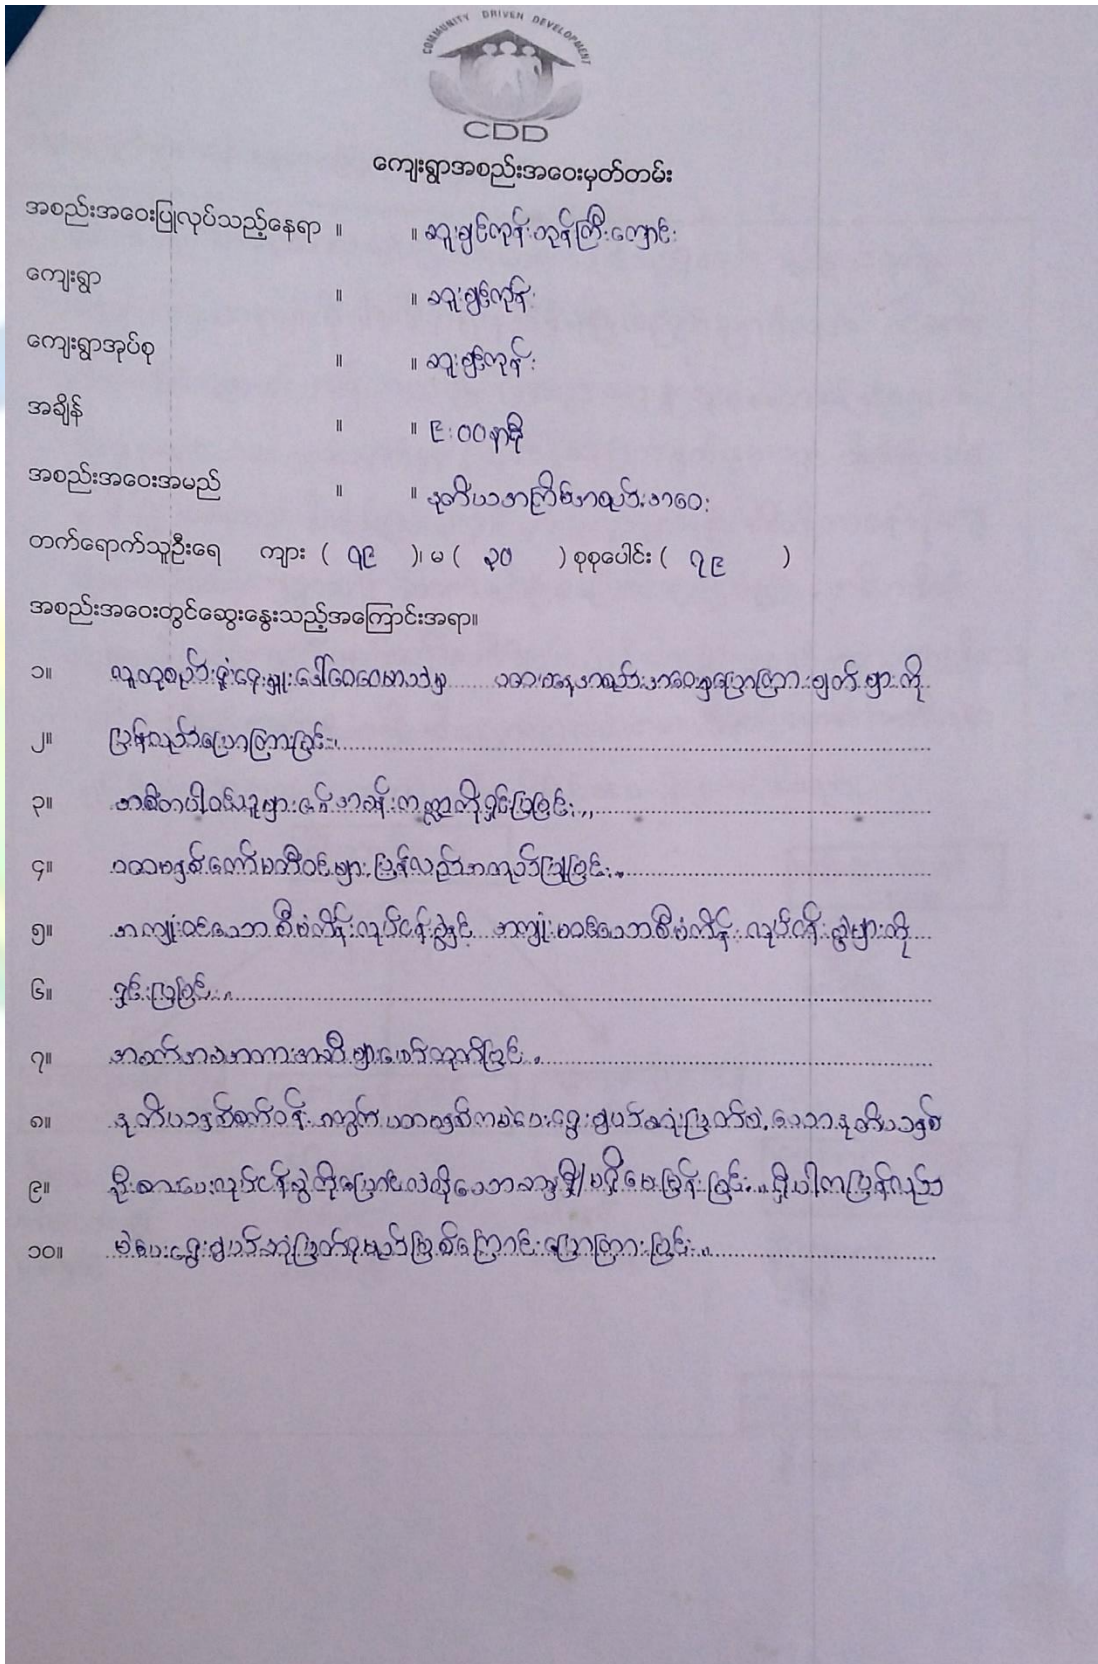 COMMUNITY DRIVEN DEVELOPMENT
CDD
ကျေးရွာအစည်းအဝေးမှတ်တမ်း
အစည်းအဝေးပြုလုပ်သည့်နေရာ ။ ။ ဆူးချင်ကုန်းဘုန်ကြီးကျောင်း
ကျေးရွာ ။ ။ ဆူးချင်ကုန်း
ကျေးရွာအုပ်စု ။ ။ ဆူးချင်ကုန်း
အချိန် ။ ။ ၉:၀၀နာရီ
အစည်းအဝေးအမည် ။ ။ ဒုတိယအကြိမ်အစည်းအဝေး
တက်ရောက်သူဦးရေ ကျား ( ၄၉ )၊ မ ( ၃၀ ) စုစုပေါင်း ( ၇၉ )
အစည်းအဝေးတွင်ဆွေးနွေးသည့်အကြောင်းအရာ။
၁။ လူထုစည်းရုံးရေးမှူးဒေါ်ဝေဝေမာသန်မှ ပထမနေ့အစည်းအဝေးမှပြောကြားချက်များကို
၂။ ပြန်လည်ပြောကြားခြင်း။
၃။ အဓိကပါဝင်သူများ၏အခန်းကဏ္ဍကိုရှင်းပြခြင်း။
၄။ ပထမနှစ်ကော်မတီဝင်များပြန်လည်အတည်ပြုခြင်း။
၅။ အကျုံးဝင်သောစီမံကိန်းလုပ်ငန်းခွဲနှင့် အကျုံးမဝင်သောစီမံကိန်းလုပ်ငန်းခွဲများကို
၆။ ရှင်းပြခြင်း။
၇။ အခက်အခဲအတားအဆီးများဖော်ထုတ်ခြင်း။
၈။ ဒုတိယနှစ်စက်ဝန်းအတွက် ပထမနှစ်ကမဲပေးရွေးချယ်ဆုံးဖြတ်ခဲ့သောဒုတိယနှစ်
၉။ ဦးစားပေးလုပ်ငန်းခွဲကိုပြောင်းလဲလိုသောဆန္ဒရှိ/မရှိမေးမြန်းခြင်း။ ရှိပါကပြန်လည်
၁၀။ မဲပေးရွေးချယ်ဆုံးဖြတ်ရမည်ဖြစ်ကြောင်းပြောကြားခြင်း။